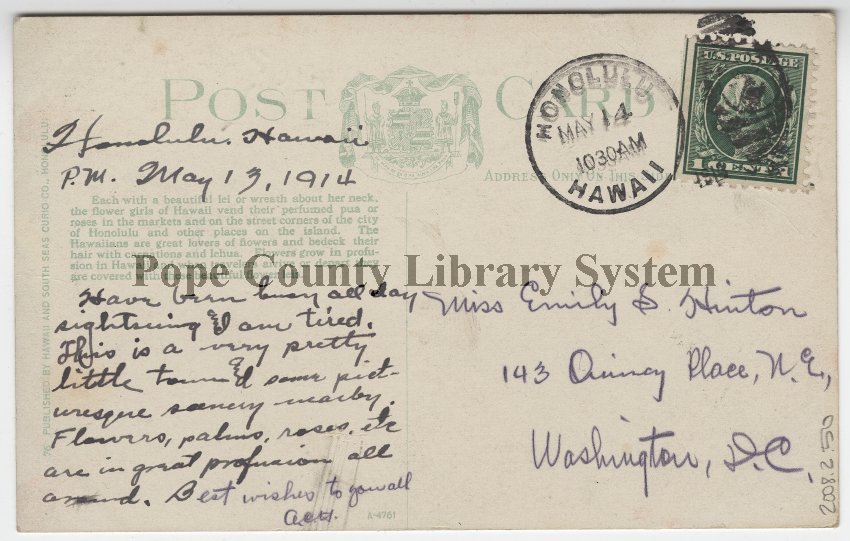 POST CARD
HONOLULU
MAY 14
1030AM
HAWAII
U.S. POSTAGE
1 CENT 1
ADDRESS ONLY ON THIS
Honolulu, Hawaii
P.M. May 13, 1914
Each with a beautiful lei or wreath about her neck,
the flower girls of Hawaii vend their perfumed pua or
roses in the markets and on the street corners of the city
of Honolulu and other places on the island. The
Hawaiians are great lovers of flowers and bedeck their
hair with carnations and lehua. Flowers grow in profu-
sion in Hawaii and when travelers arrive or depart they
are covered with
Pope County Library System
Have been busy all day
sightseeing & I am tired.
This is a very pretty
little town & some pict-
uresque scenery nearby.
Flowers, palms, roses, etc
are in great profusion all
around. Best wishes to you all
Miss Emily S. Hinton
143 Quincy Place, N.E.,
Washington, D.C.
76 PUBLISHED BY HAWAII AND SOUTH SEAS CURIO CO., HONOLULU
A-4761
2008.2.50